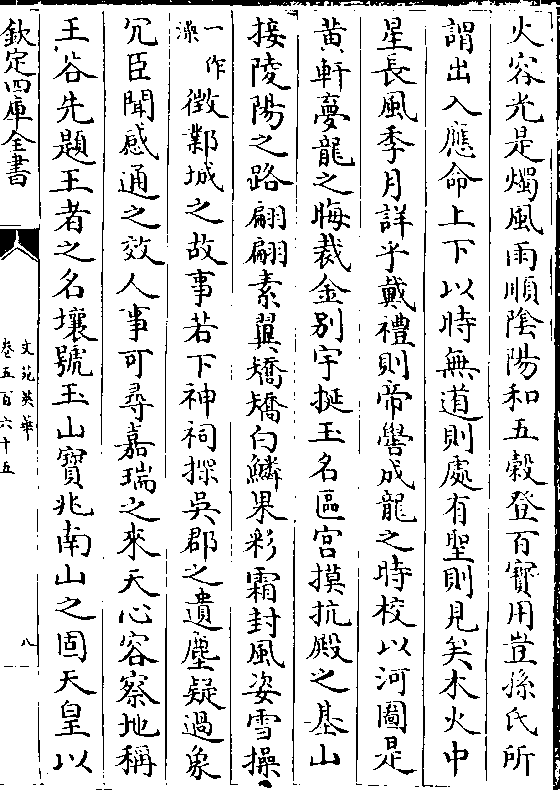 火容光是燭風雨順陰陽和五穀登百寶用豈孫氏所
謂出入應命上下以時無道則處有聖則見矣木火中
星長風季月詳乎戴禮則帝嚳成龍之時校以河圖是
黄軒夢龍之晦裁金别宇挻玉名區宫摸抗殿之基山
接陵陽之路翩翩素翼矯矯白鱗果彩霜封風姿雪操
一作澡徴鄴城之故事若下神祠探吳郡之遺塵疑過象
冗臣聞感通之效人事可尋嘉瑞之來天心容察地稱
王谷先題王者之名壤號玉山寶兆南山之固天皇以
欽定四庫全書
文苑英華
卷五百六十五
八